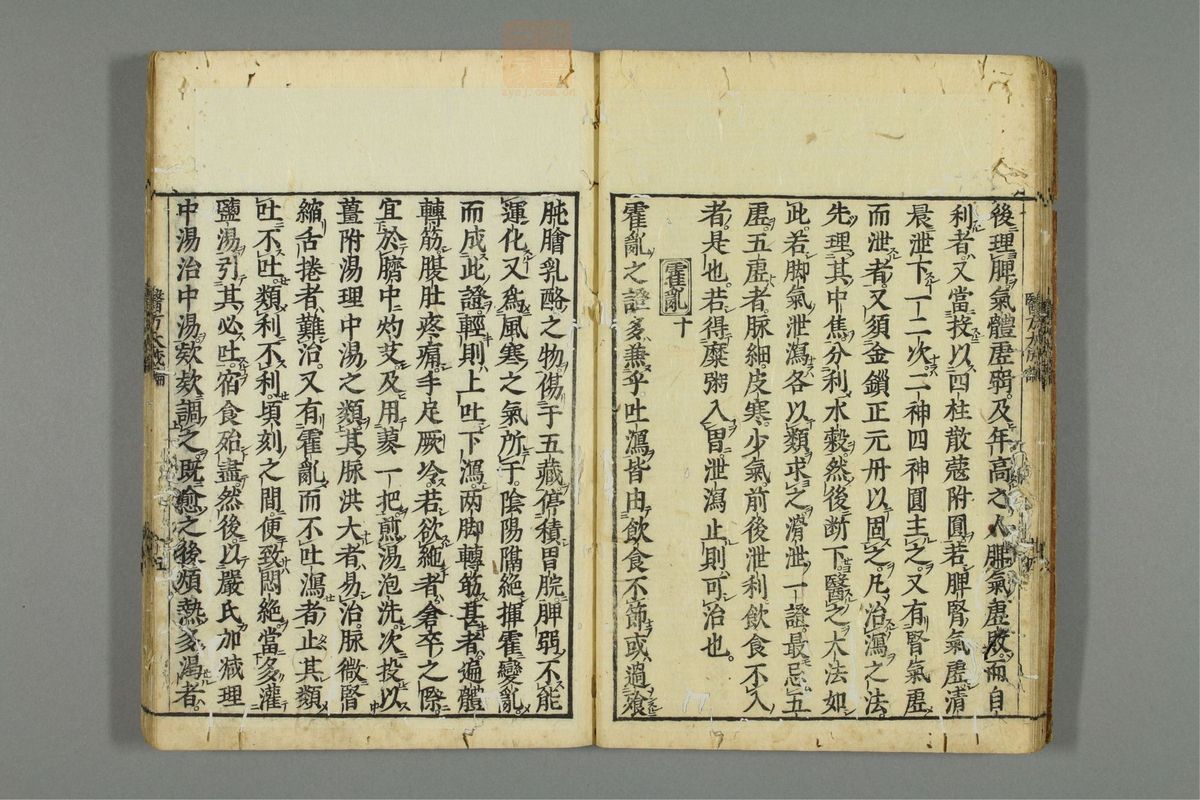 後理脾氣體虛弱及年高之人脾氣虛敗而自
利者又當投以四柱散蔻附圓若脾腎氣虛清
晨泄下一二次二神四神圓主之又有腎氣虛
而泄者又須金鎖正元丹以固之凡治瀉之法
先理其中焦分利水穀然後斷下醫之大法如
此若脚氣泄瀉各以類求之滑泄一證最忌五
虛五虛者脉細皮寒少氣前後泄利飲食不入
者是也若得糜粥入胃泄瀉止則可治也
霍亂 十
霍亂之證多兼乎吐瀉皆由飲食不節或過飡
肫膾乳酪之物傷于五藏停積胃脘脾弱不能
運化又爲風寒之氣所干陰陽隔絕揮霍變亂
而成此證輕則上吐下瀉兩脚轉筋甚者遍體
轉筋腹肚疼痛手足厥冷若欲絕者倉卒之際
宜於臍中灼艾及用蓼一把煎湯泡洗次投以
薑附湯理中湯之類其脉洪大者易治脉微腎
縮舌捲者難治又有霍亂而不吐瀉者止其類
吐不吐類利不利頃刻之間便致悶絕當多灌
鹽湯引其必吐宿食殆盡然後以嚴氏加減理
中湯治中湯欵欵調之既愈之後煩熱多渴者
醫方大成論